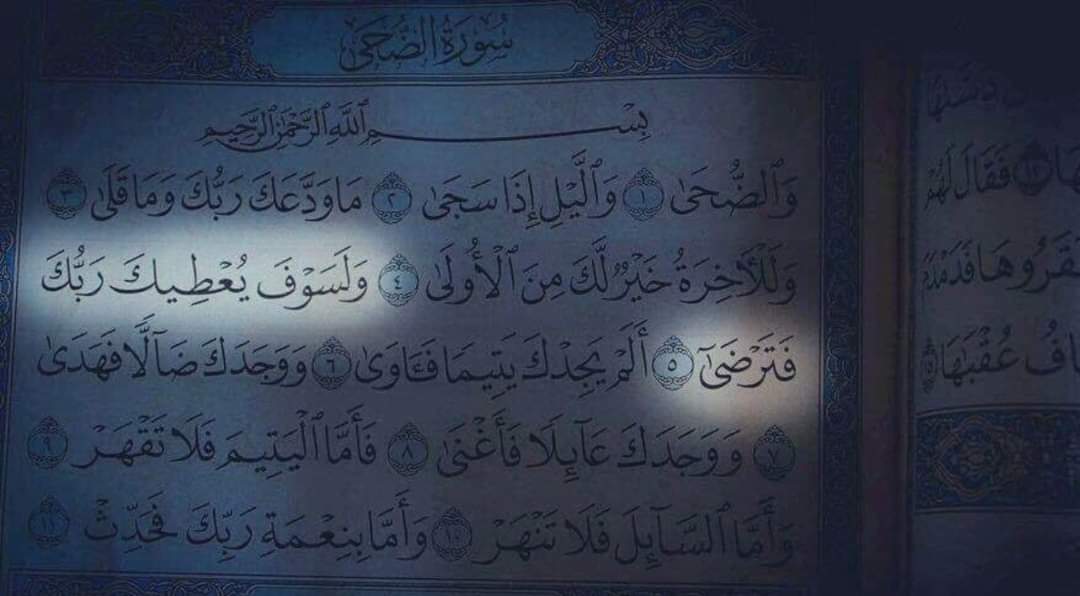 سُورَةُ الضُّحَىٰ
بِسْمِ ٱللَّهِ ٱلرَّحْمَٰنِ ٱلرَّحِيمِ
وَٱلضُّحَىٰ ١ وَٱلَّيْلِ إِذَا سَجَىٰ ٢ مَا وَدَّعَكَ رَبُّكَ وَمَا قَلَىٰ ٣
وَلَلْـَٔاخِرَةُ خَيْرٌ لَّكَ مِنَ ٱلْأُولَىٰ ٤ وَلَسَوْفَ يُعْطِيكَ رَبُّكَ
فَتَرْضَىٰٓ ٥ أَلَمْ يَجِدْكَ يَتِيمًا فَـَٔاوَىٰ ٦ وَوَجَدَكَ ضَآلًّا فَهَدَىٰ
٧ وَوَجَدَكَ عَآئِلًا فَأَغْنَىٰ ٨ فَأَمَّا ٱلْيَتِيمَ فَلَا تَقْهَرْ ٩
وَأَمَّا ٱلسَّآئِلَ فَلَا تَنْهَرْ ١٠ وَأَمَّا بِنِعْمَةِ رَبِّكَ فَحَدِّثْ ١١
فَقَالَ لَهُمْ
عُقْبَٰهَا ١٥